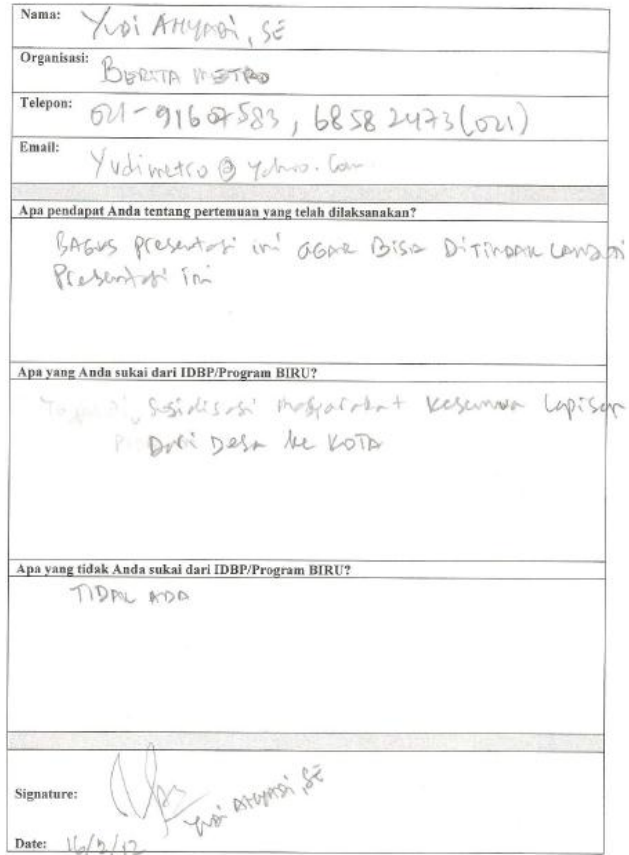 Nama: Yudi AHyadi, SE
Organisasi: BERITA METRO
Telepon: 021-91607583, 68582473(021)
Email: Yudimetro@yahoo.com
Apa pendapat Anda tentang pertemuan yang telah dilaksanakan?
BAGUS presentasi ini AGAR BISA DITINDAK LANJUTI
Presentasi ini
Apa yang Anda sukai dari IDBP/Program BIRU?
Sosialisasi masyarakat kesemua lapisan
Dari Desa ke KOTA
Apa yang tidak Anda sukai dari IDBP/Program BIRU?
TIDAK ADA
Signature:
Yudi AHyadi, SE
Date: 16/2/12